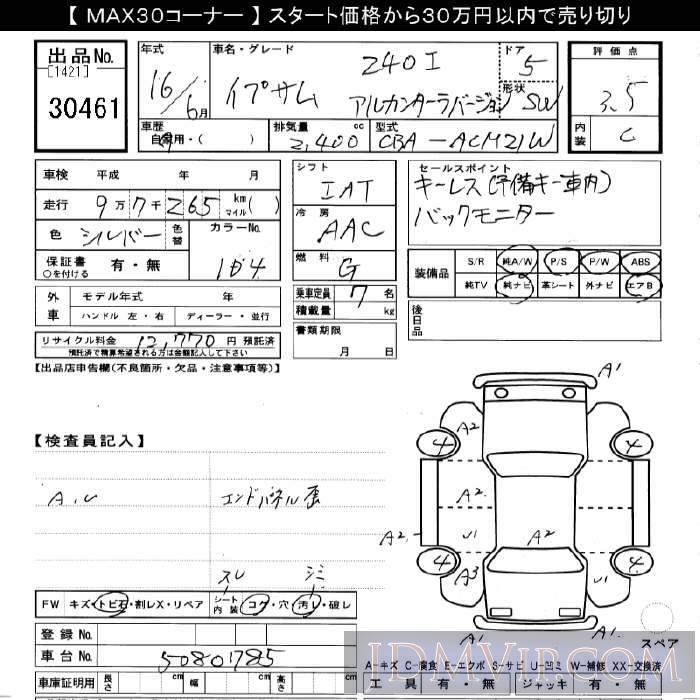 【 MAX30コーナー 】 スタート価格から30万円以内で売り切り
出品No.
[1421]
30461
年式 車名・グレード ドア 評価点
16/6月 イプサム 240I 5 3.5
アルカンターラバージョン 形状 SW
車歴 排気量 cc 型式 内装 C
自家用・( ) 2,400 CBA-ACM21W
車検 平成 年 月
走行 9万7千265 km マイル( )
色 シルバー 色替 カラーNo.
保証書 有・無 1D4
○を付ける
シフト IAT
冷房 AAC
燃料 G
乗車定員 7名
積載量 kg
書類期限
月 日
セールスポイント
キーレス(予備キー車内)
バックモニター
装備品 S/R 純A/W P/S P/W ABS
純TV 純ナビ 革シート 外ナビ エアB
後日品
外車 モデル年式 年
ハンドル 左・右 ディーラー・並行
リサイクル料金 12,770 円 預託済
預託済で精算希望される方は金額記入して下さい
【出品店申告欄(不良箇所・欠品・注意事項等)】
【検査員記入】
A,U エンドパネル歪
スレ シミ
FW キズ・トビ石・割レX・リペア シート内装 コゲ・穴 汚レ・破レ
登録No.
車台No. 50801785
車庫証明用 長さ cm 幅 cm 高さ cm
A1
A2
4 4
A2
A2 U1 A2
4 4
A3 U1
A1 A1
スペア
A-キズ C-腐食 E-エクボ S-サビ U-凹ミ W-補修 XX-交換済
工具 有・無 ジャッキ 有・無
IDMVIP.COM